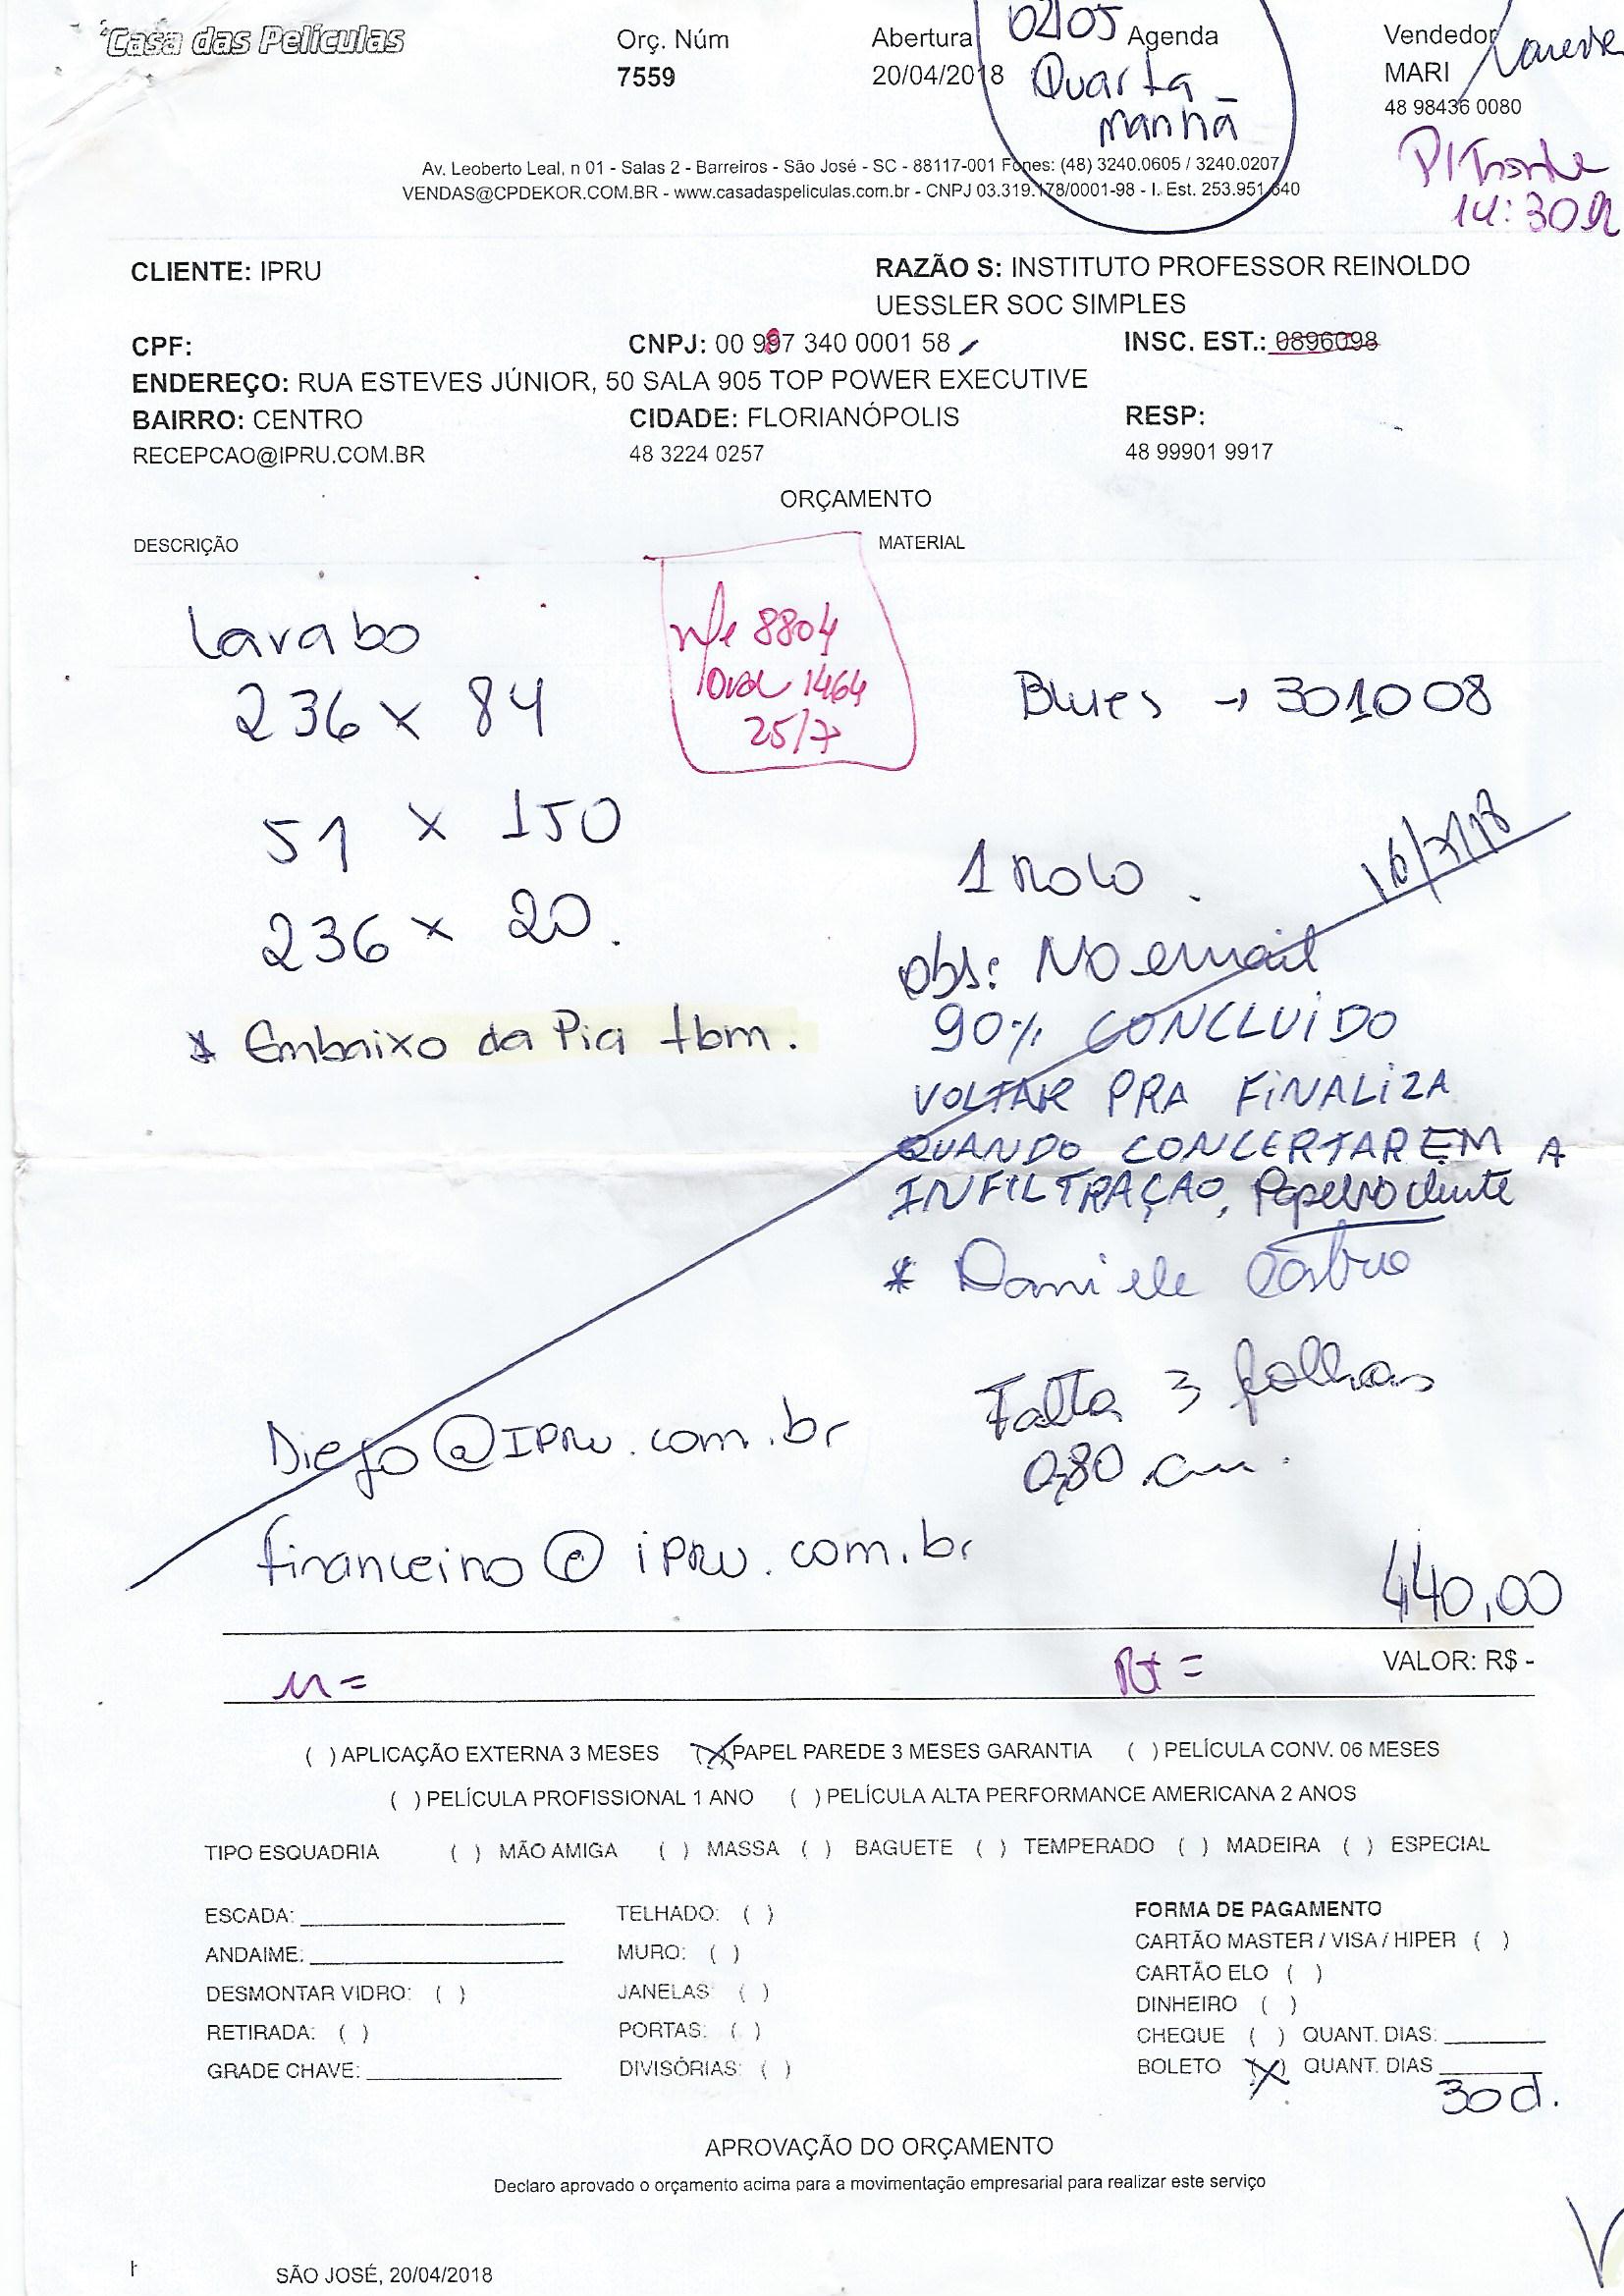 Casa das Películas
Orç. Núm
7559
Abertura
20/04/2018
02/05
Agenda
Quarta
manhã
Vendedor
MARI
48 98436 0080
14:30
Av. Leoberto Leal, n 01 - Salas 2 - Barreiros - São José - SC - 88117-001 Fones: (48) 3240.0605 / 3240.0207
VENDAS@CPDEKOR.COM.BR - www.casadaspeliculas.com.br - CNPJ 03.319.178/0001-98 - I. Est. 253.951.640
CLIENTE: IPRU
RAZÃO S: INSTITUTO PROFESSOR REINOLDO
UESSLER SOC SIMPLES
CPF:
CNPJ: 00 987 340 0001 58
INSC. EST.: 0896098
ENDEREÇO: RUA ESTEVES JÚNIOR, 50 SALA 905 TOP POWER EXECUTIVE
BAIRRO: CENTRO
CIDADE: FLORIANÓPOLIS
RESP:
RECEPCAO@IPRU.COM.BR
48 3224 0257
48 99901 9917
ORÇAMENTO
DESCRIÇÃO
MATERIAL
Lavabo
236 x 84
51 x 150
236 x 20.
* Embaixo da Pia tbm.
8804
1464
25/7
Blues → 301008
1 Rolo
16/7/18
Obs: No email
90% CONCLUIDO
VOLTAR PRA FINALIZA
QUANDO CONCERTAREM A
INFILTRAÇAO, Papel no cliente
* Daniele Castro
Falta 3 folhas
0,80 cm.
Diego@IPRU.com.br
financeiro@ipru.com.br
440,00
M =
Rt =
VALOR: R$ -
( ) APLICAÇÃO EXTERNA 3 MESES (X) PAPEL PAREDE 3 MESES GARANTIA ( ) PELÍCULA CONV. 06 MESES
( ) PELÍCULA PROFISSIONAL 1 ANO ( ) PELÍCULA ALTA PERFORMANCE AMERICANA 2 ANOS
TIPO ESQUADRIA ( ) MÃO AMIGA ( ) MASSA ( ) BAGUETE ( ) TEMPERADO ( ) MADEIRA ( ) ESPECIAL
ESCADA:
ANDAIME:
DESMONTAR VIDRO: ( )
RETIRADA: ( )
GRADE CHAVE:
TELHADO: ( )
MURO: ( )
JANELAS: ( )
PORTAS: ( )
DIVISÓRIAS: ( )
FORMA DE PAGAMENTO
CARTÃO MASTER / VISA / HIPER ( )
CARTÃO ELO ( )
DINHEIRO ( )
CHEQUE ( ) QUANT. DIAS:
BOLETO (X) QUANT. DIAS
30 d.
APROVAÇÃO DO ORÇAMENTO
Declaro aprovado o orçamento acima para a movimentação empresarial para realizar este serviço
SÃO JOSÉ, 20/04/2018